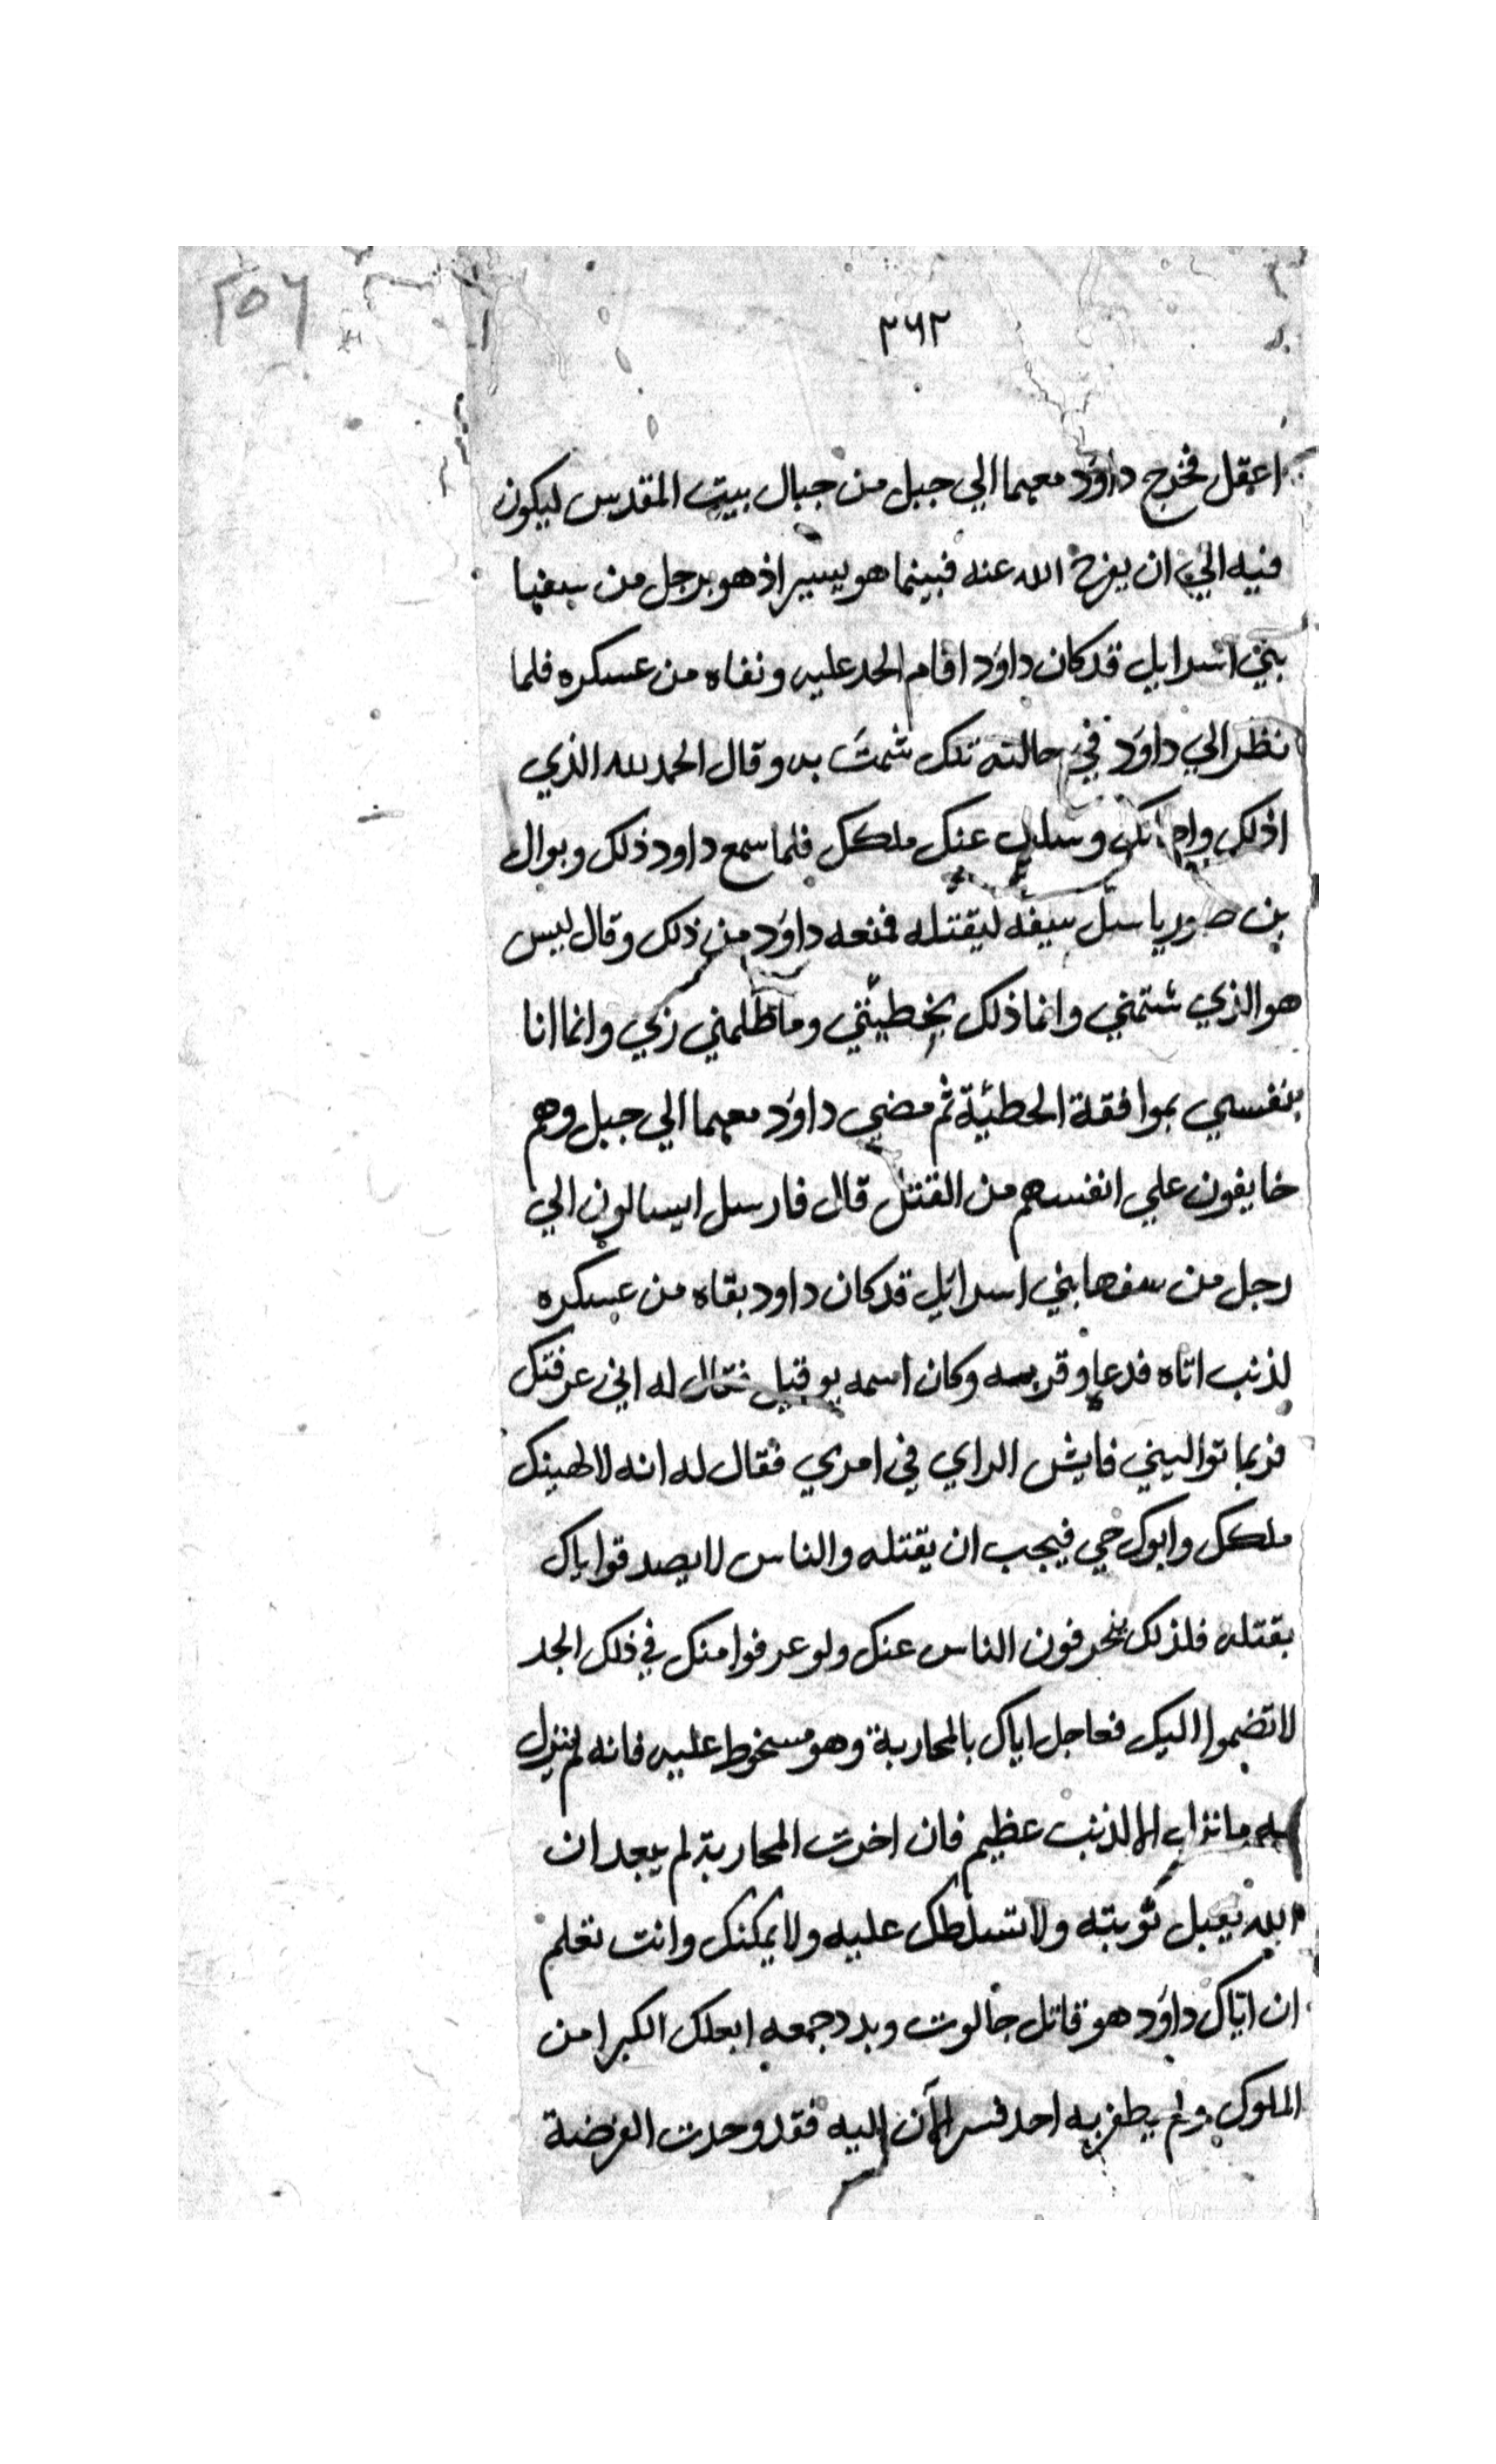 ٢٥٦
٣٦٢
اعقل فخرج داوَد معهما الي جبل من جبال بيت المقدس ليكون
فيه الي ان يفرج الله عنه فبينما هو يسير اذ هو برجل من سفها
بني اسرايل قد كان داوَد اقام الحد عليه ونفاه من عسكره فلما
نظر الي داوَد في حالته تلك شمت به وقال الحمد لله الذي
اذلك وسلب عنك ملكك فلما سمع داود ذلك وبوال
بن صوريا سل سيفه ليقتله فمنعه داوَد من ذلك وقال ليس
هو الذي شتمني وانما ذلك بخطيئتي وما ظلمني ربي وانما انا
بنفسي بموافقة الخطئية ثم مضي داوَد معهما الي جبل وهم
خايفون علي انفسهم من القتل قال فارسل ايسالون الي
رجل من سفها بني اسرائل قد كان داود بقاه من عسكره
لذنب اتاه فدعا وقربه وكان اسمه بوقيل فقال له اني عرفتك
فربما تواليني فايش الراي في امري فقال له انه لا لهينك
ملكك وابوك حي فيجب ان يقتله والناس لا يصدقوا باك
بقتله فلذلك ينحرفون الناس عنك ولو عرفوا منك في ذلك الجد
لا تضموا اليك فعاجل اياك بالمحاربة وهو مسخوط عليه فانه لم ينزل
به ما نزل الا لذنب عظيم فان اخرت المحاربة لم يبعد ان
الله يقبل توبته ولا تسلطك عليه ولا يمكنك وانت تعلم
ان اباك داوَد هو قاتل جالوت وبدد جمعه الكبرا من
الملوك ولم يظفر به احد فسر الآن اليه فقد وجدت الفرضة